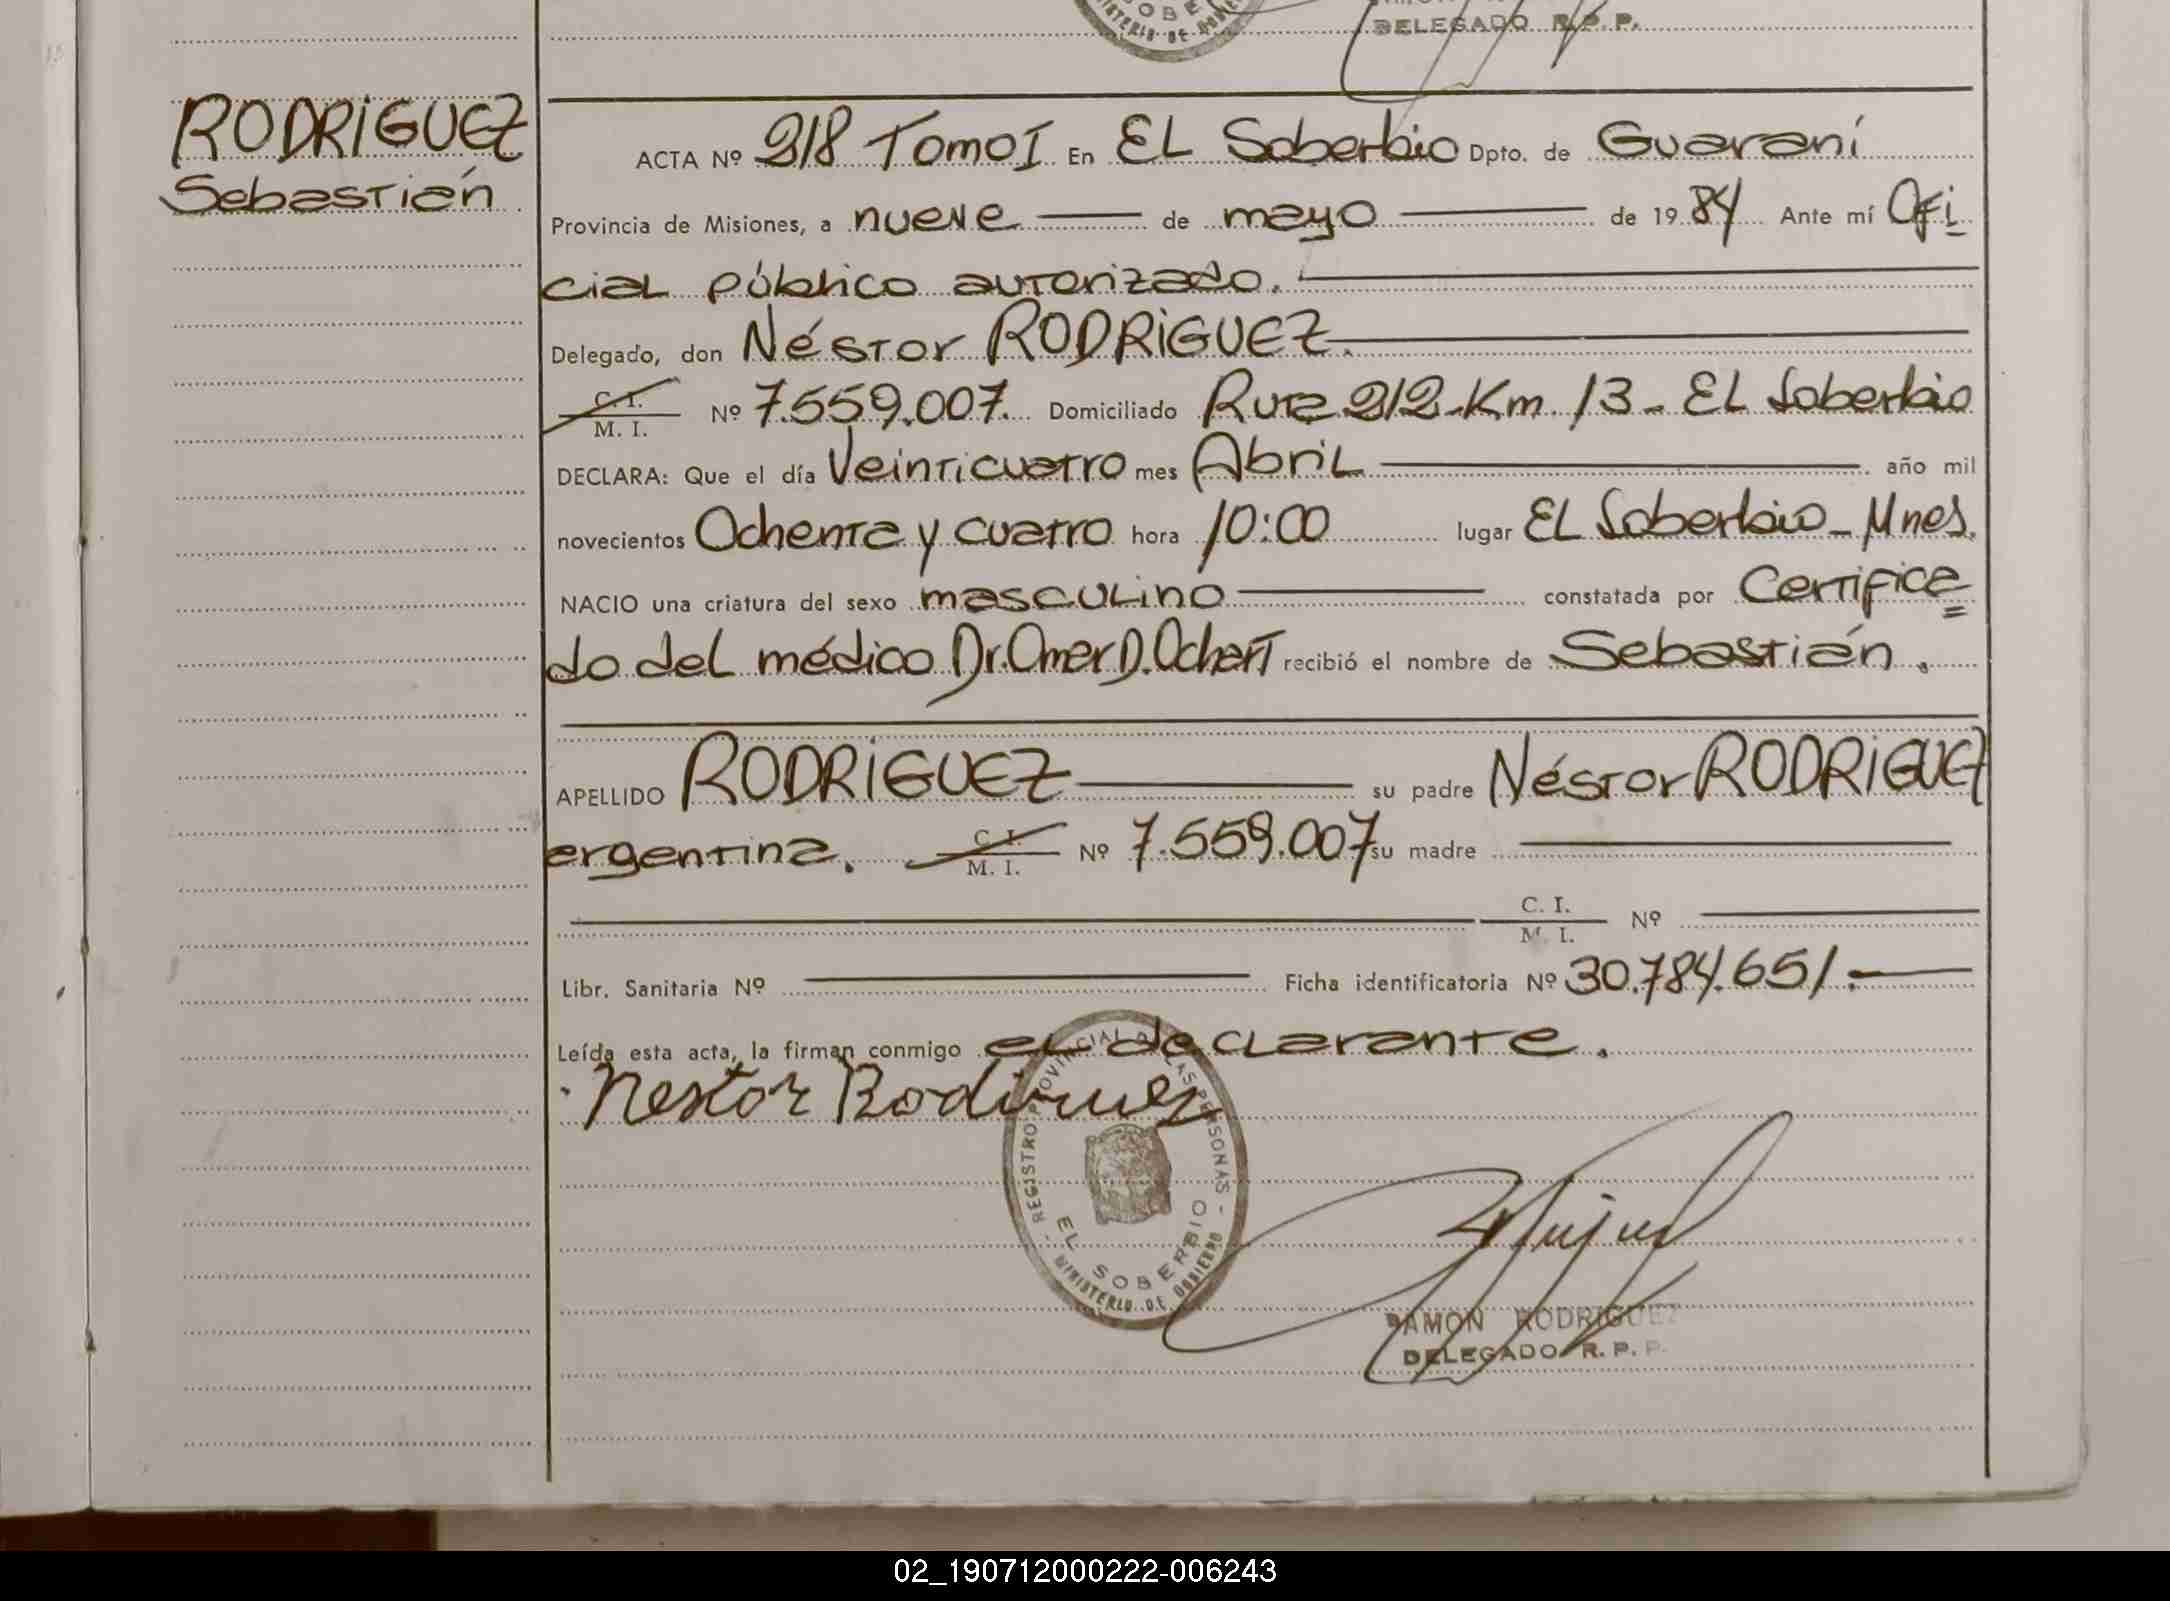 SOBE
MINISTERIO DE GOBI
DELEGADO R. P. P.
RODRIGUEZ
Sebastián
ACTA Nº 218 Tomo I En EL Soberbio Dpto. de Guaraní
Provincia de Misiones, a nueve de mayo de 1984 Ante mí Ofi
cial público autorizado.
Delegado, don Néstor RODRIGUEZ.
C. I.
M. I. Nº 7.559.007. Domiciliado Ruta 212-Km. 13- EL Soberbio
DECLARA: Que el día Veinticuatro mes Abril año mil
novecientos Ochenta y cuatro hora 10:00 lugar EL Soberbio-Mnes.
NACIO una criatura del sexo masculino constatada por Certifica
do del médico Dr. Omar D. recibió el nombre de Sebastián.
APELLIDO RODRIGUEZ su padre Néstor RODRIGUEZ
argentina. C. I.
M. I. Nº 7.559.007 su madre
C. I.
M. I. Nº
Libr. Sanitaria Nº Ficha identificatoria Nº 30.784.651.-
Leída esta acta, la firman conmigo el declarante.
Nestor Rodriguez
REGISTRO PROVINCIAL DE LAS PERSONAS
EL SOBERBIO
MINISTERIO DE GOBIERNO
RAMON RODRIGUEZ
DELEGADO R. P. P.
02_190712000222-006243